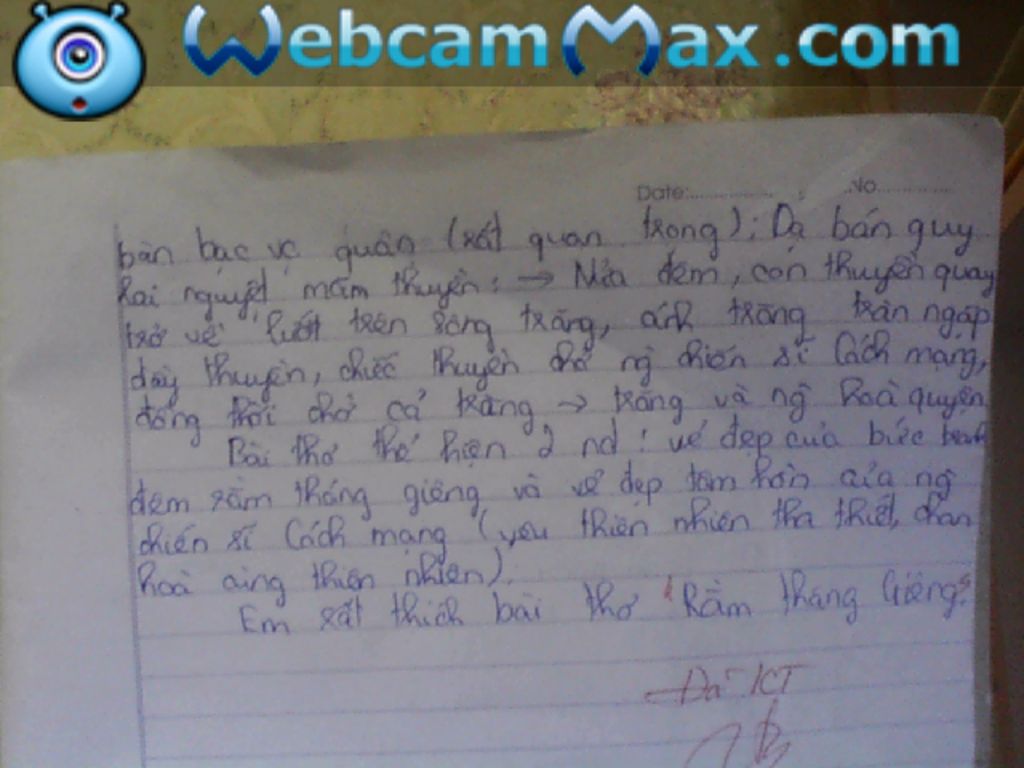 WebcamMax.com
Date:............... No..............
bàn bạc vc quân (rất quan trọng); Dạ bán quy
lai nguyệt mãm thuyền: → Nửa đêm, con thuyền quay
trở về lướt trên sông trăng, ánh trăng tràn ngập
đầy thuyền, chiếc thuyền chở ng chiến sĩ Cách mạng,
đồng thời chở cả trăng → trăng và ng hoà quyện
Bài thơ thể hiện 2 nd: vẻ đẹp của bức tranh
đêm rằm tháng giêng và vẻ đẹp tâm hồn của ng
chiến sĩ Cách mạng (yêu thiên nhiên tha thiết, chan
hoà cùng thiên nhiên).
Em rất thích bài thơ "Rằm tháng Giêng".
Đã KT